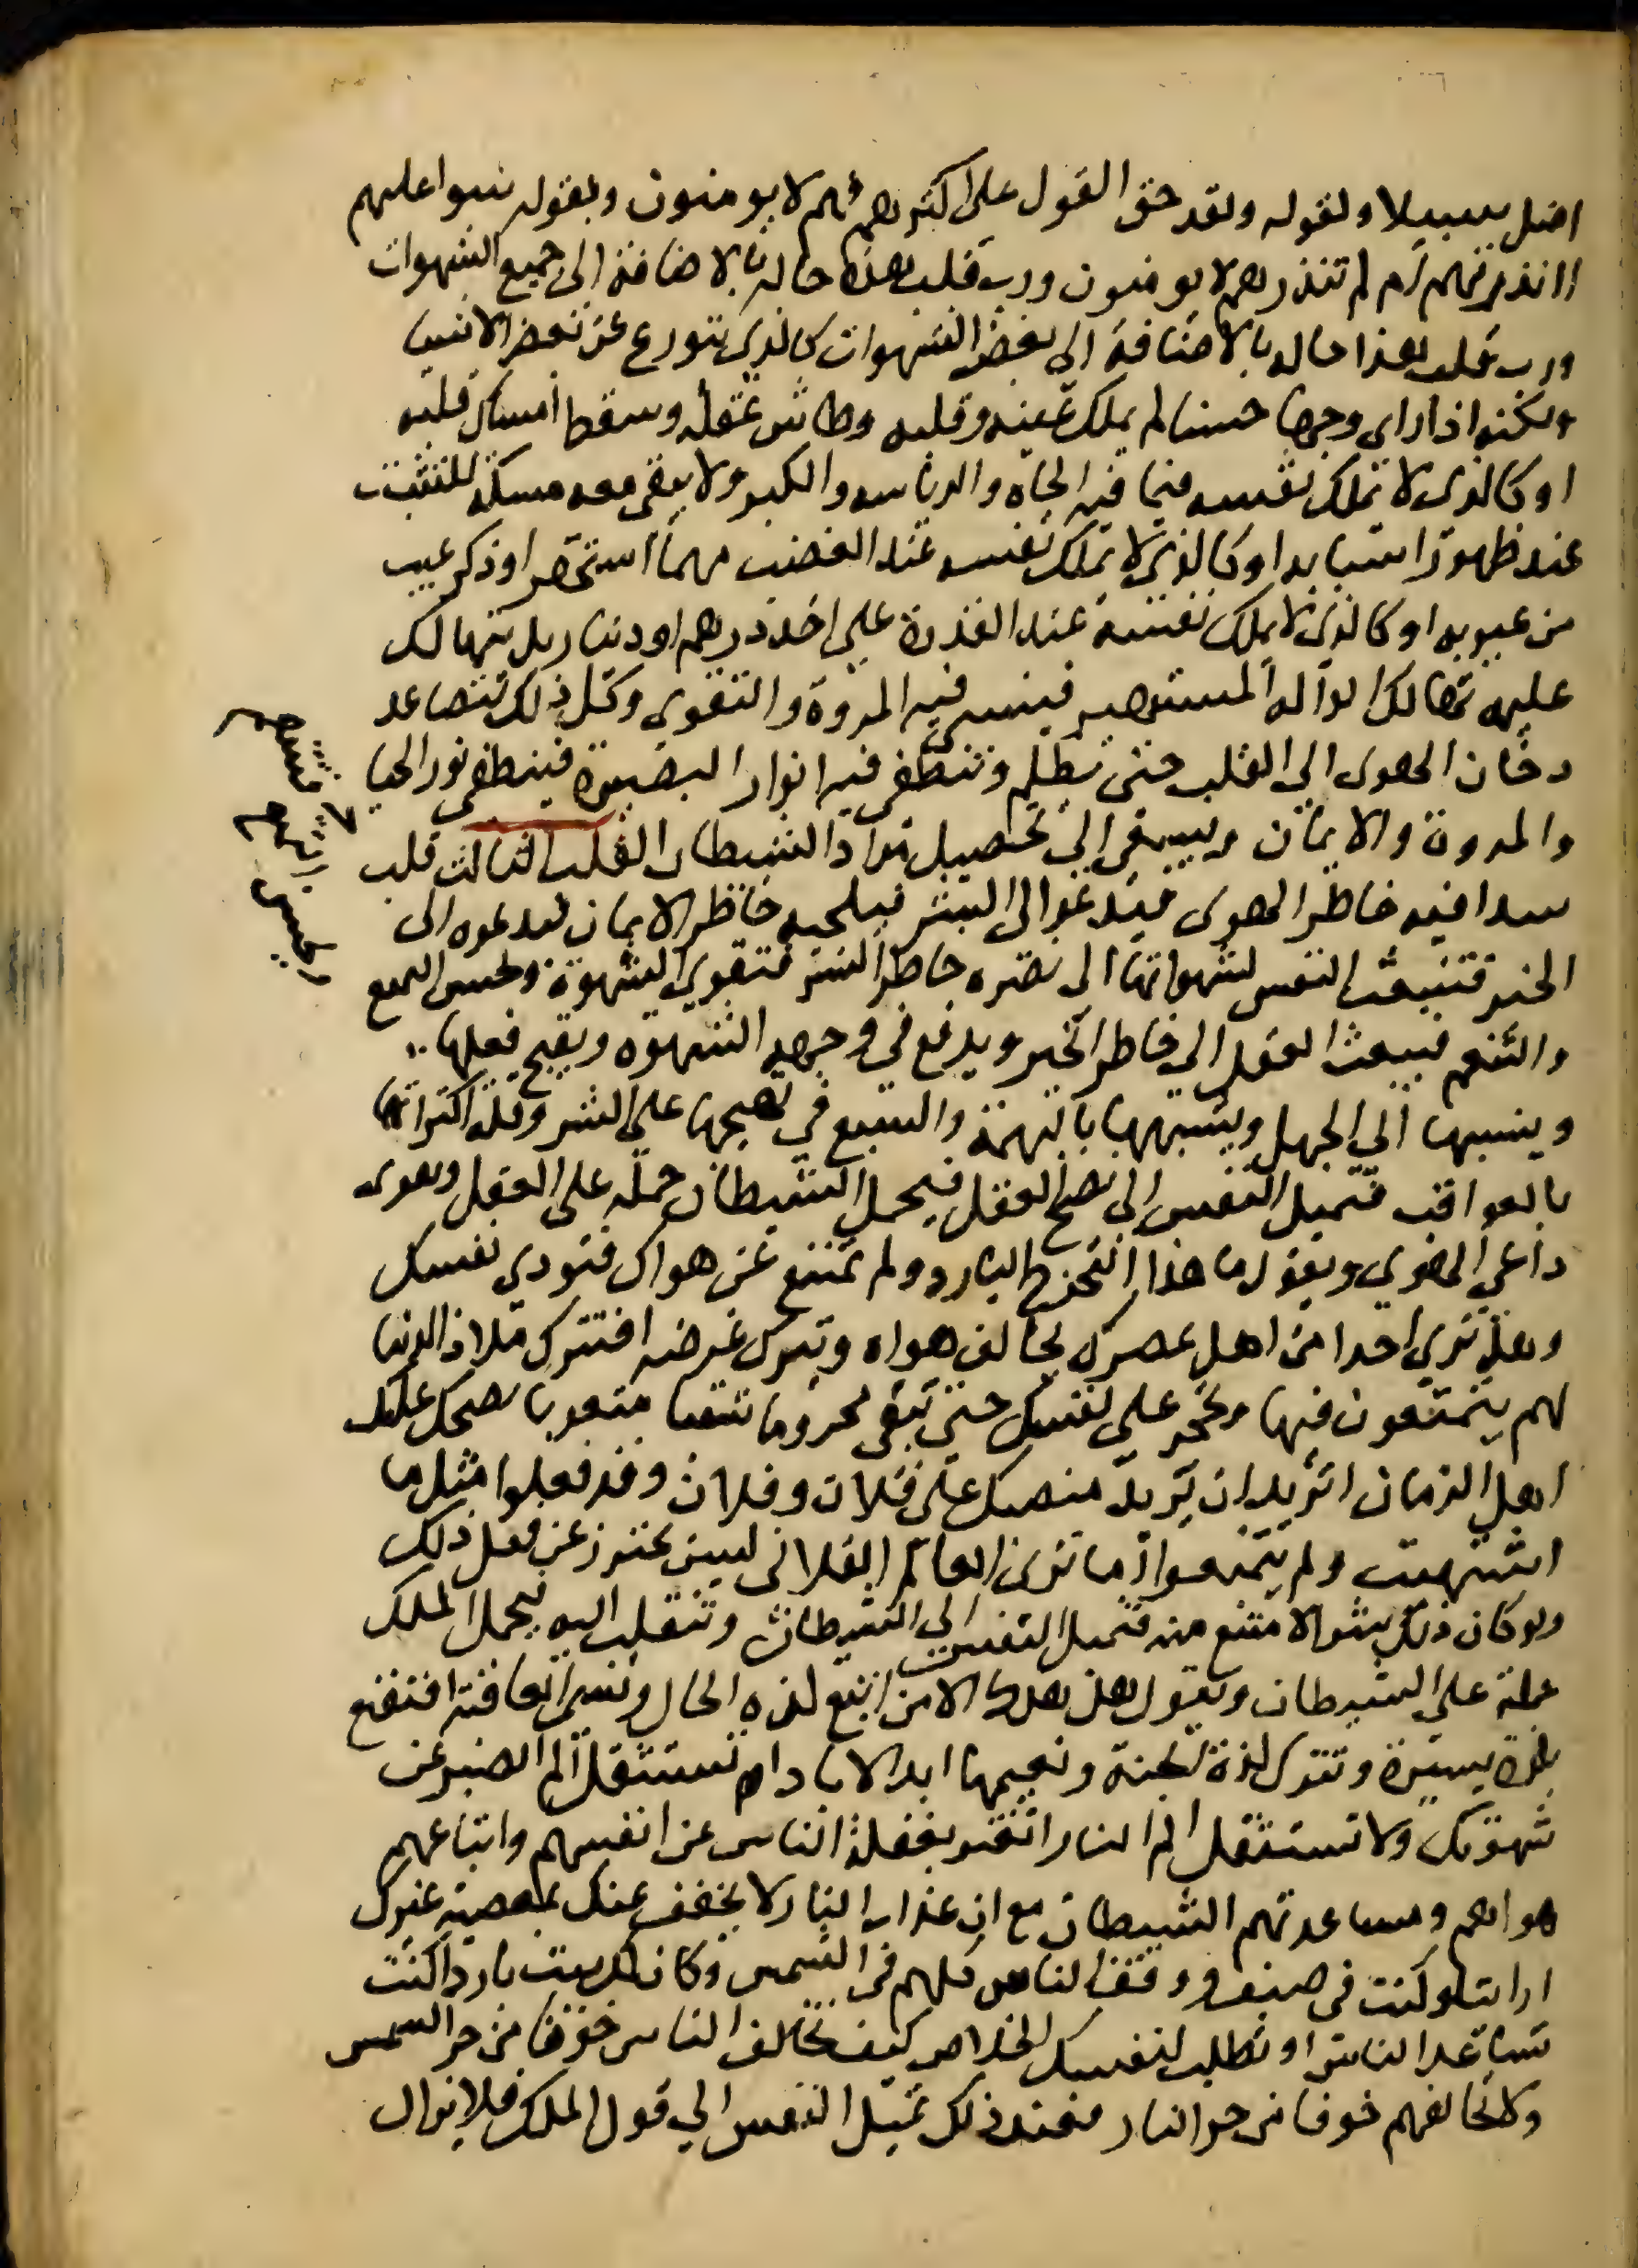 اضل سبيلا ولقوله ولقد حق القول على اكثرهم فهم لا يومنون وبقوله سوا عليهم
اانذرتهم ام لم تنذرهم لا يومنون ورب قلب هذا حاله بالاضافة الى جميع الشهوات
ورب قلب هذا حاله بالاضافة الى بعض الشهوات كالذي يتورع عن بعض الاشيا
ولكنه اذا راى وجها حسنا لم يملك عينه وقلبه وطاش عقله وسقط امساك قلبه
او كالذى لا يملك نفسه فيما فيه الجاه والرياسه والكبر ولا يبقى معه مسكة للتثبت
عند ظهور اسبابه او كالذي لا يملك نفسه عند الغضب مهما استحقر او ذكر عيب
من عيوبه او كالذى لا يملك نفسه عند القدرة على اخذ درهم او دينار بل يتهالك
عليه تهالك الواله المستهتر فينسى فيه المروة والتقوى وكل ذلك لتصاعد
دخان الهوى الى القلب حتى يظلم وتنطفى فيه انوار البصيرة فينطفى نور الحيا
والمروة والايمان ويسعى الى تحصيل مراد الشيطان القلب الثالث قلب
سدا فيه خاطر الهوى فيدعوا الى الشر فيلحقه خاطر الايمان فيدعوه الى
الخير فتنبعث النفس لشهواتها الى نصره خاطر الشر فتقوى الشهوة وتحسن التمتع
والتنعم فيبعث العقل الى خاطر الخير ويدفع في وجهه الشهوه ويقبح فعلها
وينسبها الى الجهل ويشبهها بالبهيمة والسبع في تهجمها على الشر وقلة اكتراثها
بالعواقب فتميل النفس الى نصح العقل فيحمل الشيطان حملة على العقل ويقوى
داعي الهوي ويقول ما هذا التحرج البارد ولم تمتنع عن هواك فتودي نفسك
وهل تري احدا من اهل عصرك يخالف هواه ويترك غرضه افتترك ملاذ الدنيا
لهم يتمتعون فيها وتحجر على نفسك حتى تبقى محروما شقيا متعوبا يضحك عليك
اهل الزمان اتريد ان يزيد منصبك على فلان وفلان وقد فعلوا مثل ما
اشتهيت ولم يمتنعوا اما ترى العالم الفلانى ليس يحترز عن فعل ذلك
ولو كان ذلك شرا لامتنع منه فتميل النفس الى الشيطان وتنقلب اليه فيحمل الملك
حملة على الشيطان ويقول هل هلك الا من اتبع لذه الحال ونسى العاقبة افتقنع
بلذة يسيرة وتترك لذة الجنة ونعيمها ابد الاباد ام تستثقل الم الصبر عن
شهوتك ولا تستثقل الم النار اتغتر بغفلة الناس عن انفسهم واتباعهم
هواهم ومساعدتهم الشيطان مع ان عذاب النار لا يخفف عنك بمعصية غيرك
ارايت لو كنت في صيف ووقف الناس كلهم في الشمس وكان لك بيت بارد اكنت
تساعد الناس او تطلب لنفسك الخلاص كيف تخالف الناس خوفا من حر الشمس
ولا تخالفهم خوفا من حر النار فعند ذلك تميل النفس الى قول الملك فلا يزال